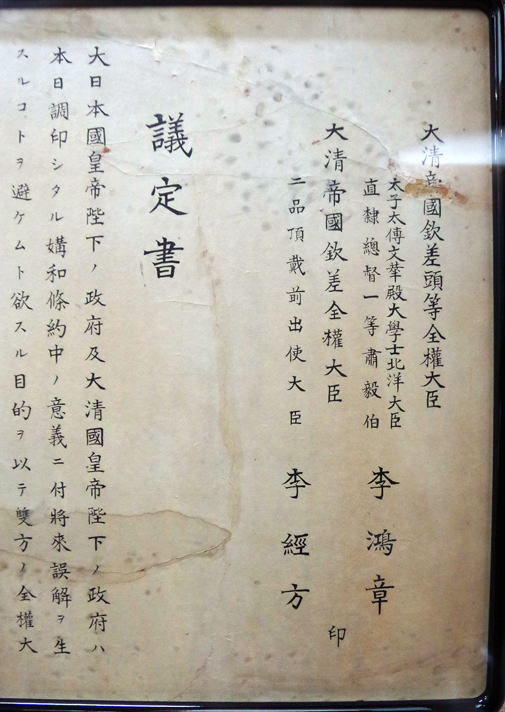 大清帝國欽差頭等全權大臣
太子太傅文華殿大學士北洋大臣
直隸總督一等肅毅伯
李鴻章
印
大清帝國欽差全權大臣
二品頂戴前出使大臣
李經方
議定書
大日本國皇帝陛下ノ政府及大清國皇帝陛下ノ政府ハ
本日調印シタル媾和條約中ノ意義ニ付將來誤解ヲ生
スルコトヲ避ケムト欲スル目的ヲ以テ雙方ノ全權大